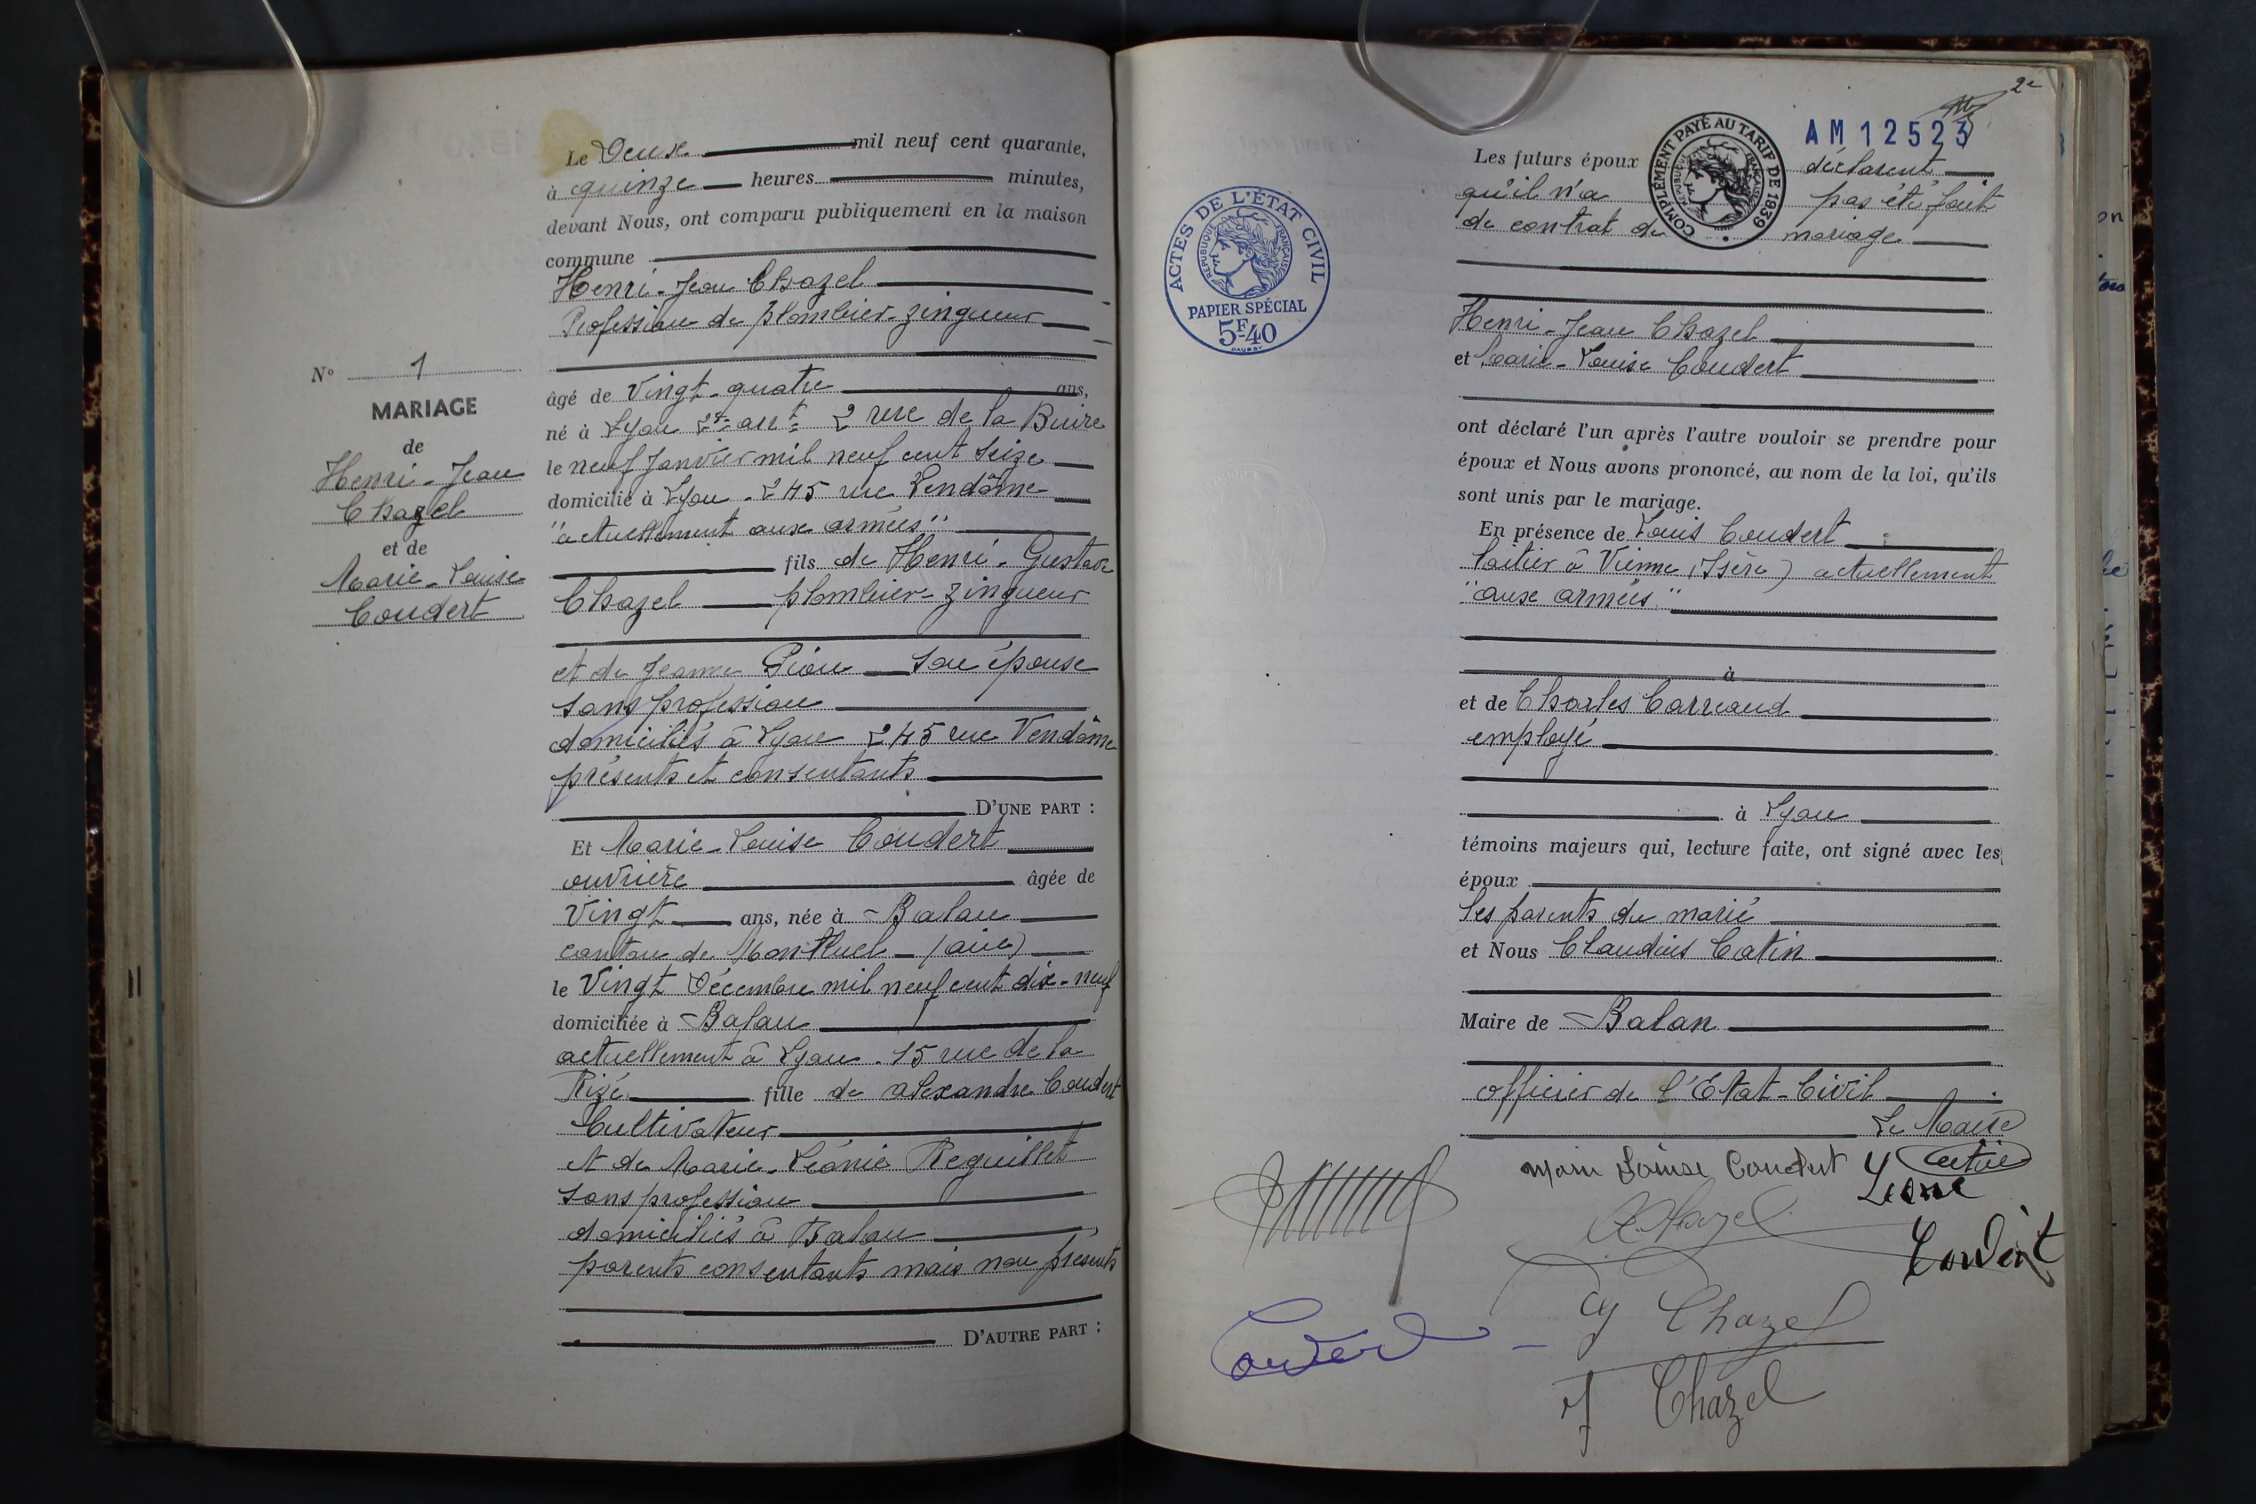 Le Deux mil neuf cent quarante,
à quinze heures minutes,
devant Nous, ont comparu publiquement en la maison
commune
Henri-Jean Chazel
Profession de plombier-zingueur
âgé de Vingt-quatre ans,
né à Lyon arrt 2 rue de la Buire
le neuf Janvier mil neuf cent seize
domicilié à Lyon. 245 rue Vendôme
"actuellement aux armées"
fils de Henri-Gustave
Chazel plombier-zingueur
et de Jeanne Pion son épouse
sans profession
domiciliés à Lyon 245 rue Vendôme
présents et consentants
D'UNE PART :
Et Marie-Louise Coudert
ouvrière âgée de
Vingt ans, née à Balan
canton de Montluel (ain)
le Vingt Décembre mil neuf cent dix-neuf
domiciliée à Balan
actuellement à Lyon. 15 rue de la
Rize fille de alexandre Coudert
Cultivateur
et de Marie-Léonie Reguillet
sans profession
domiciliés à Balan
parents consentants mais non présents
D'AUTRE PART :
N° 1
MARIAGE
de
Henri-Jean
Chazel
et de
Marie-Louise
Coudert
2e
AM 12523
COMPLÉMENT PAYÉ AU TARIF DE 1939
RÉPUBLIQUE FRANÇAISE
ACTES DE L'ÉTAT CIVIL
RÉPUBLIQUE FRANÇAISE
PAPIER SPÉCIAL
5F40
Les futurs époux déclarent
qu'il n'a pas été fait
de contrat de mariage
Henri-Jean Chazel
et Marie-Louise Coudert
ont déclaré l'un après l'autre vouloir se prendre pour
époux et Nous avons prononcé, au nom de la loi, qu'ils
sont unis par le mariage.
En présence de Louis Coudert
laitier à Vienne (Isère) actuellement
"aux armées"
à
et de Charles Carreaud
employé
à Lyon
témoins majeurs qui, lecture faite, ont signé avec les
époux
les parents du marié
et Nous Claudius Catin
Maire de Balan
officier de l'Etat-Civil
Le Maire
Marie Louise Coudert
Catin
Chazel
Coudert
Chazel
Coudert
Chazel